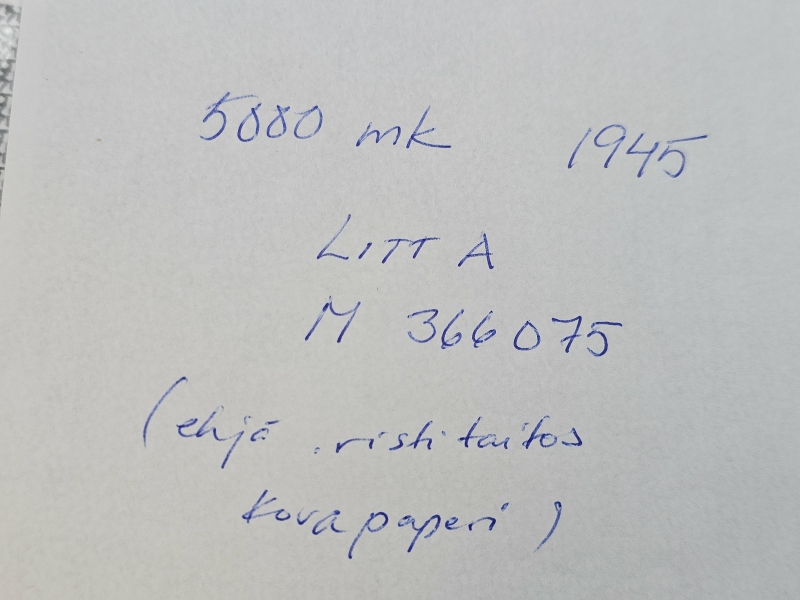 5000 mk 1945
LITT A
M 366075
(ehjä, ristitaitos
kova paperi)